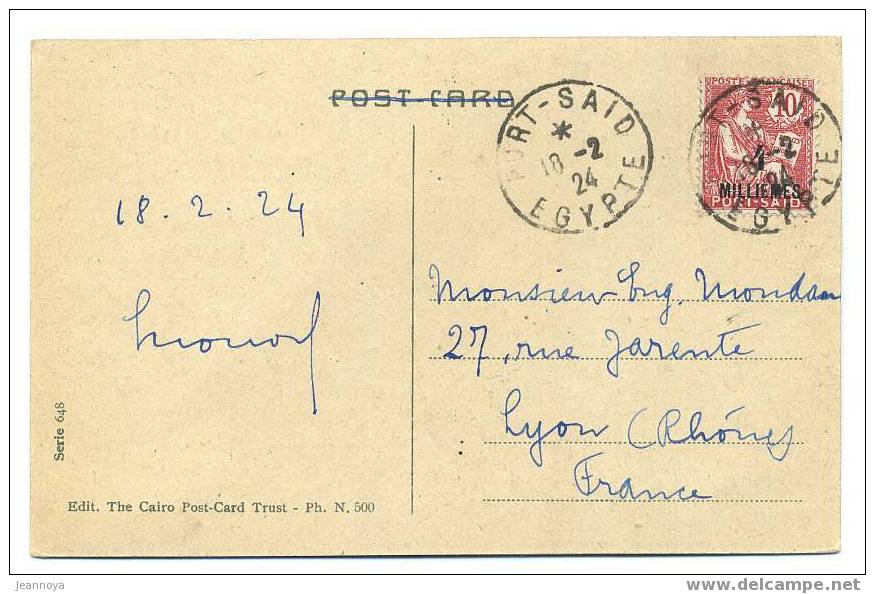 POST CARD
PORT-SAID
18 -2
24
EGYPTE
POSTE FRANÇAISE
10
MILLIEMES
PORT-SAID
T-SAID
-2
24
EGYPTE
18.2.24
Monsieur Eug. Mondan
27, rue Jarente
Lyon (Rhône)
France
Serie 648
Edit. The Cairo Post-Card Trust - Ph. N. 500
jeannoya
www.delcampe.net